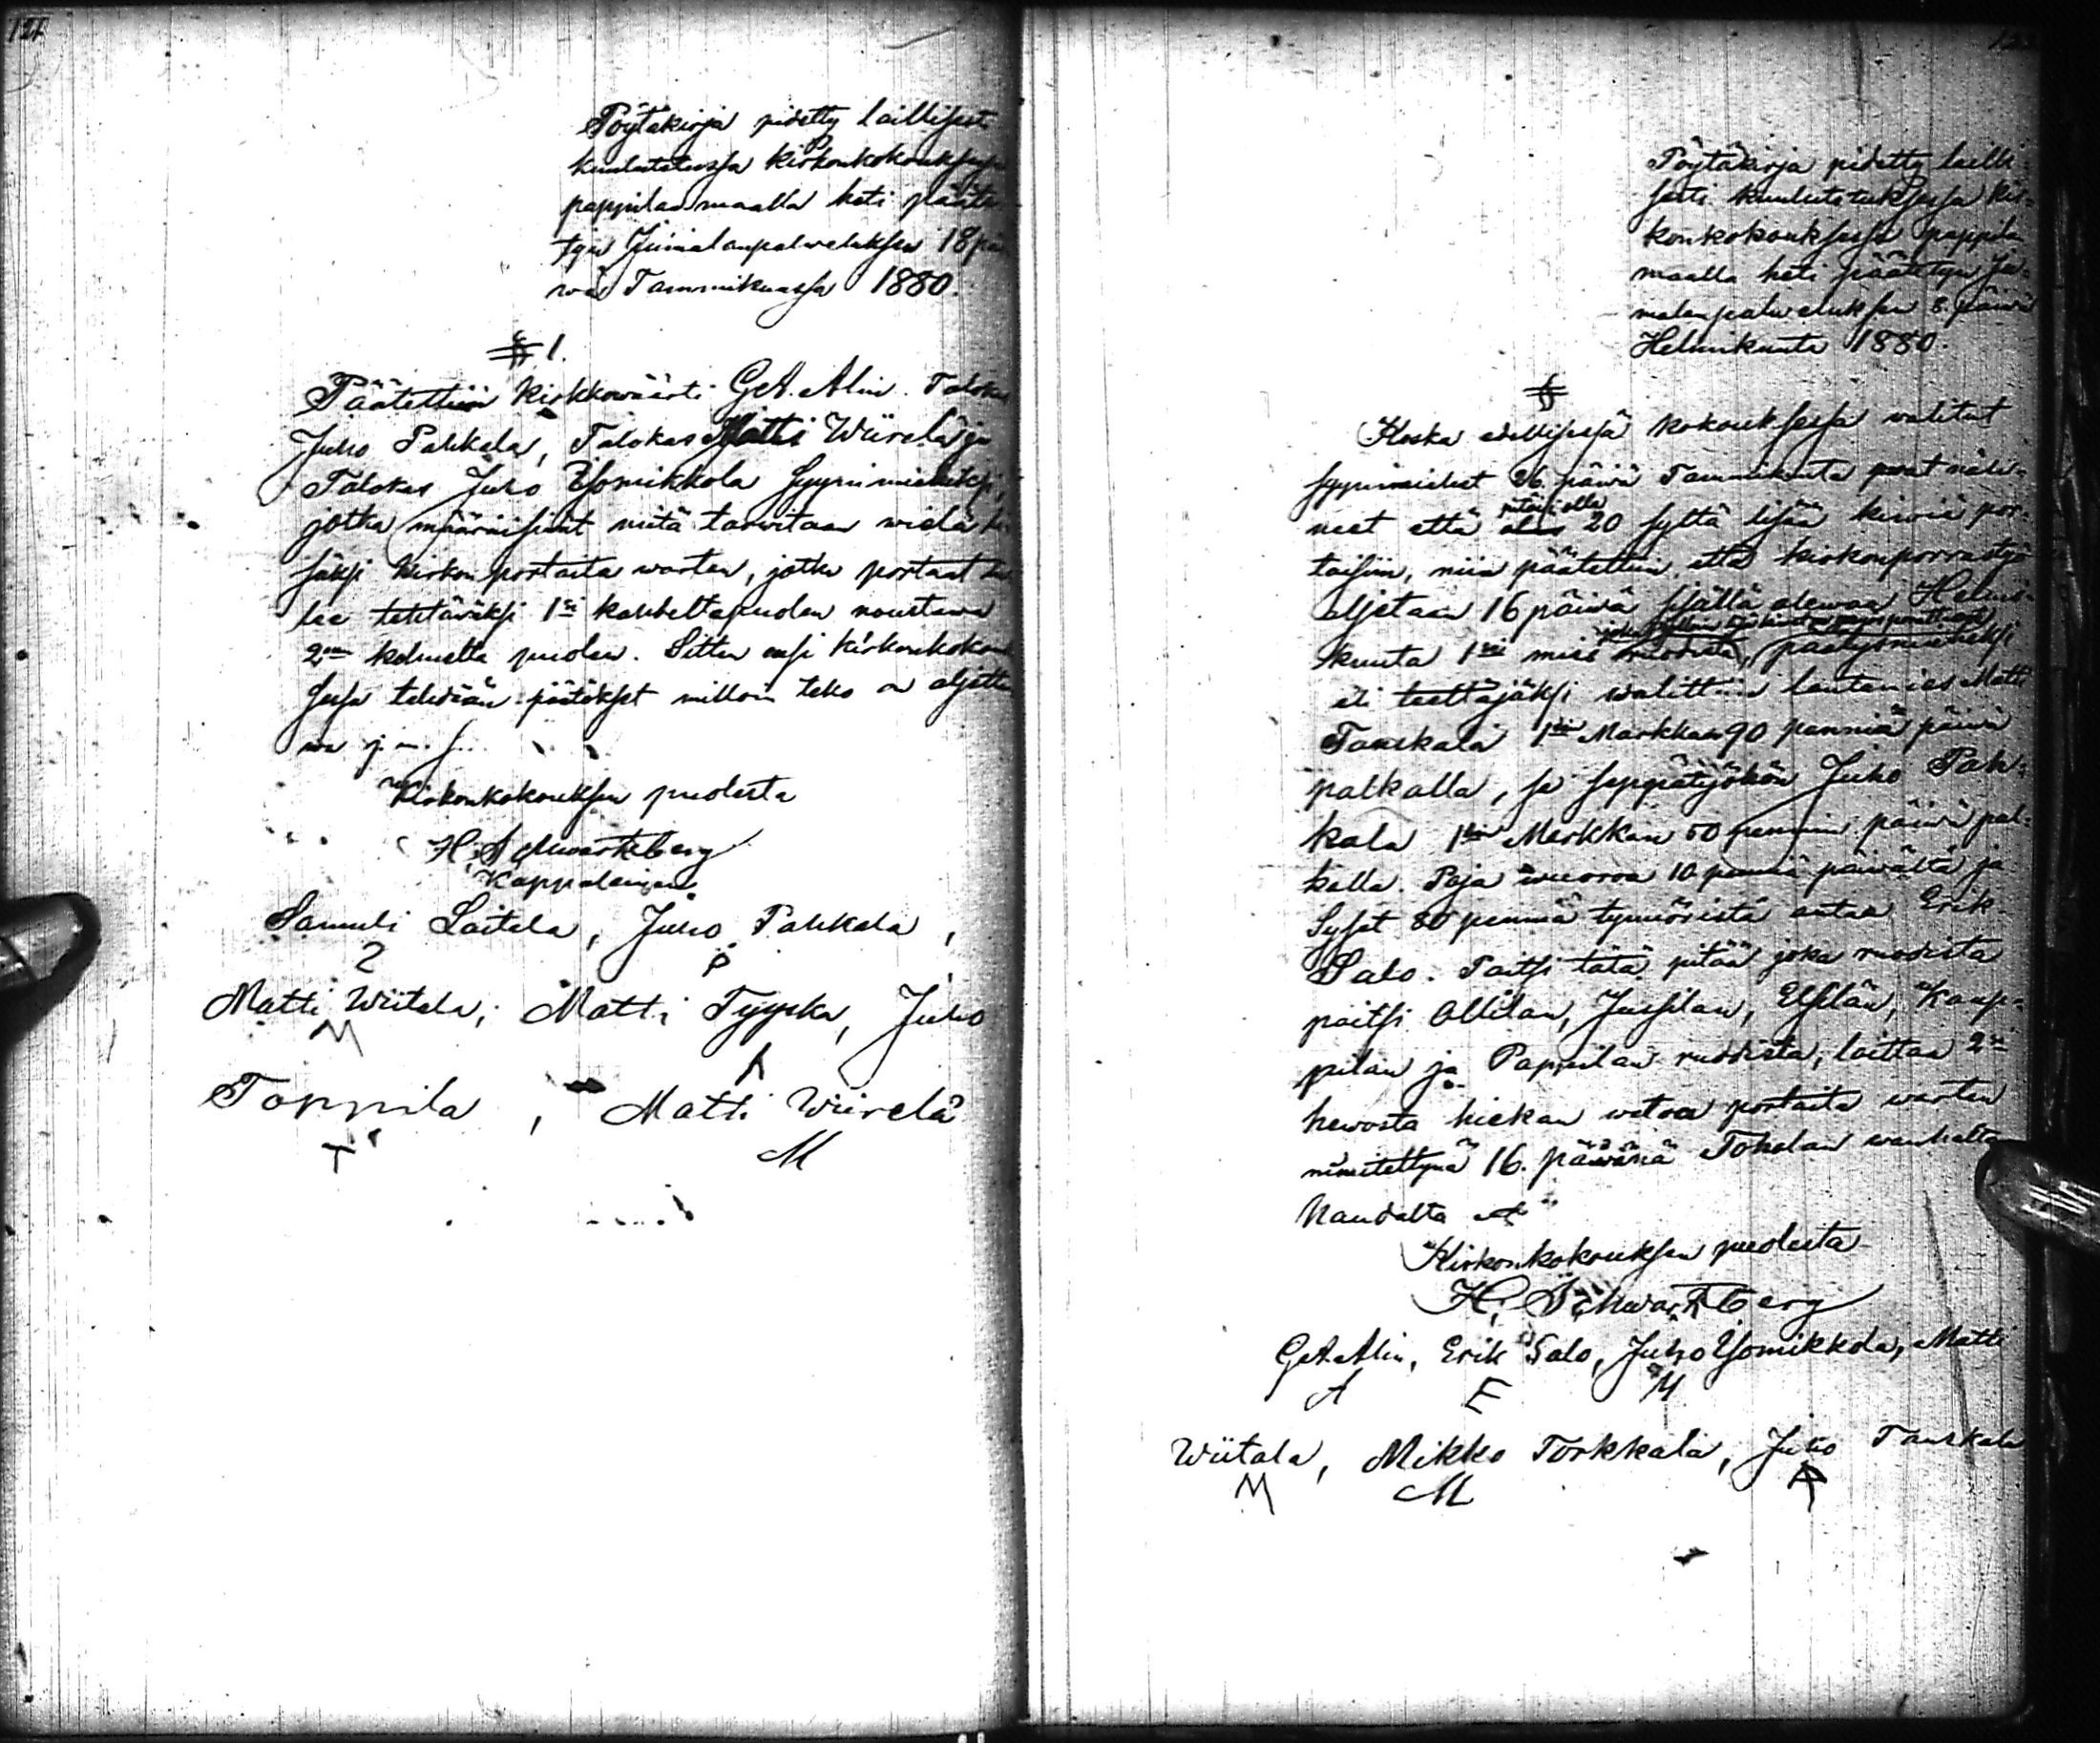 121
Pöytäkirja pidetty laillisest
kuulutetussa kirkonkokouksessa
pappilan maalla heti pääte
tyn Jumalanpalweluksen 18 päi
wä Tammikuussa 1880.
§ 1.
Päätettiin Kirkkowäärti G.A. Alin. Talokas
Juho Pahkala, Talokas Matti Wiirelä ja
Talokas Juho Ysomikkola syynimiehiksi,
jotka määräisiwät mitä tarwitaan wielä li
säksi kirkon portaita warten, jotka portaat tu
lee tehtäwäksi 1si kahdeltapuolen noustawa
2 kolmelta puolen. Sitten ensi kirkonkokouk
sessa tehdään päätökset milloin teko on aljetta
wa j. n. s.
Kirkonkokouksen puolesta
H. Schwartzberg
Kappalainen
Samuli Laitala, Juho Pahkala,
Matti Wiitala, Matti Tyyska, Juho
M
Toppila, Matti Wiirelä
T M
Pöytäkirja pidetty lailli-
sesti kuulutetuksessa kir-
konkokouksessa pappilan
maalla heti päätetyn Ju-
malanpalweluksen 8. päiwä
Helmikuuta 1880.
§
Koska edellisessä kokouksessa walitut
syynimiehet 26. päiwä Tammikuuta owat näh-
neet että pitäisi olla 20 syltä lisää kiwiä por-
taisiin, niin päätettiin, että kirkonporrastyö
aljetaan 16 päiwä sisällä olewaa Helmi-
kuuta 1si mies ruodista, päätyömieheksi
eli teettäjäksi walittiin lautamies Matti
Tanskala 1 Markkan 90 penniä päiwä
palkalla, ja seppätyöhön Juho Pah-
kala 1 Markkan 50 pennin päiwä pal-
kalla. Paja wuoroa 10 penniä päiwältä ja
Syset 50 penniä tynnöristä antaa Erik
Salo. Paitsi tätä pitää joka ruodista
paitsi Ollilan, Jussilan, Elsilän, Kaup-
pilan ja Pappilan ruodista, laittaa 2
hewosta hiekan wetoa portaita warten
nimitettynä 16. päiwänä Toholan wanhalta
haudalta
Kirkonkokouksen puolesta
H. Schwartzberg
G.A. Alin, Erik Salo, Juho Ysomikkola, Matti
A E M
Wiitala, Mikko Torkkala, Juho Tanskala
M M